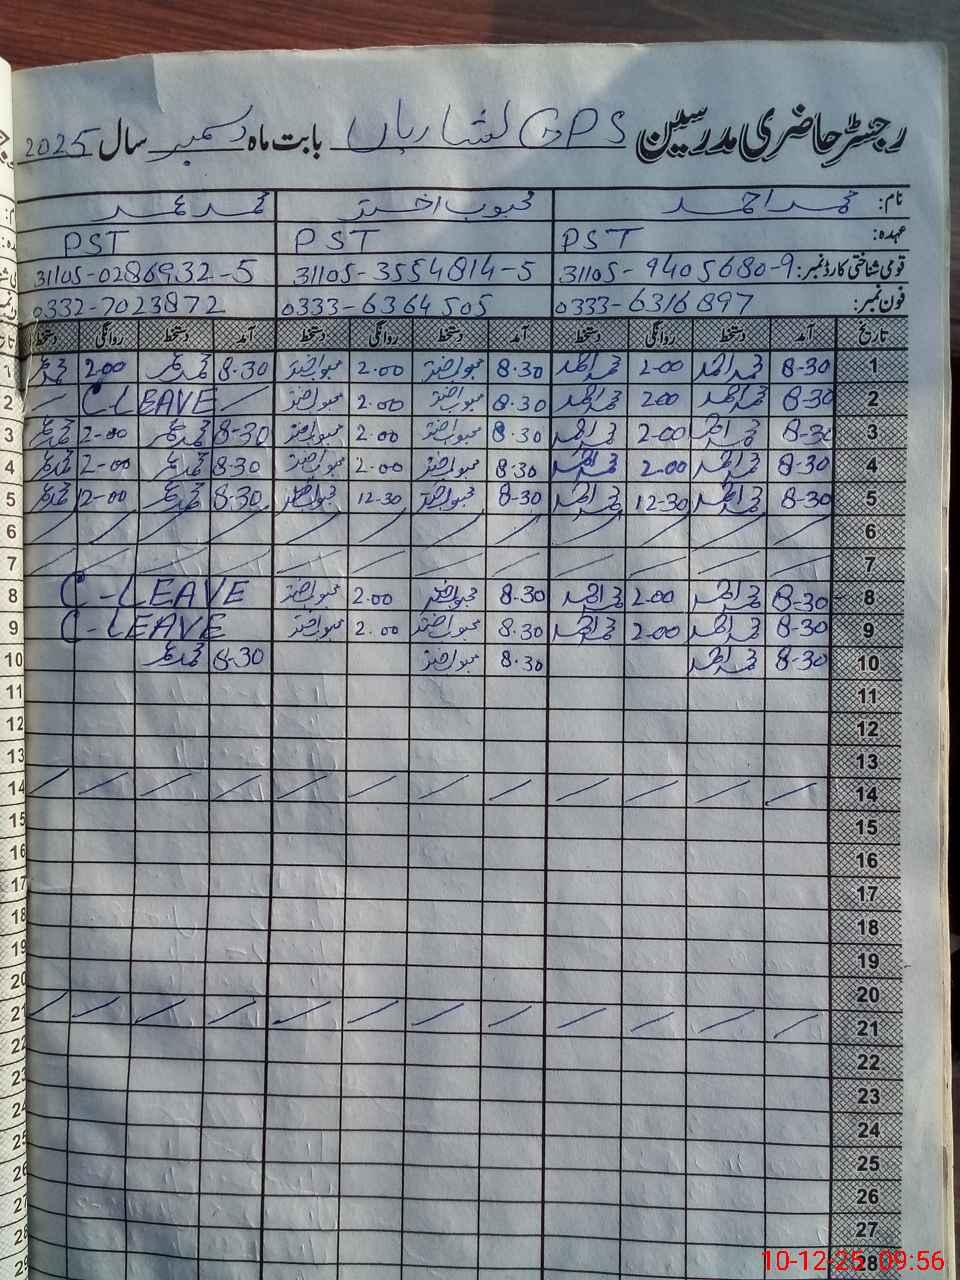 رجسٹر حاضری مدرسین GPS لشاریاں بابت ماہ دسمبر سال 2025
نام: محمد احمد محبوب اختر محمد عمر
عہدہ: PST PST PST
قومی شناختی کارڈ نمبر: 31105-9405680-9 31105-3554814-5 31105-0286932-5
فون نمبر: 0333-6316897 0333-6364505 0332-7023872
تاریخ آمد دستخط روانگی دستخط آمد دستخط روانگی دستخط آمد دستخط روانگی دستخط
1 8-30 محمد احمد 2-00 محمد احمد 8.30 محبوب اختر 2.00 محبوب اختر 8.30 محمد عمر 2.00 محمد عمر
2 8-30 محمد احمد 2.00 محمد احمد 8.30 محبوب اختر 2.00 محبوب اختر C-LEAVE
3 8-30 محمد احمد 2-00 محمد احمد 8.30 محبوب اختر 2.00 محبوب اختر 8-30 محمد عمر 2-00 محمد عمر
4 8-30 محمد احمد 2-00 محمد احمد 8.30 محبوب اختر 2.00 محبوب اختر 8-30 محمد عمر 2-00 محمد عمر
5 8-30 محمد احمد 12-30 محمد احمد 8.30 محبوب اختر 12-30 محبوب اختر 8-30 محمد عمر 12-00 محمد عمر
6
7
8 8-30 محمد احمد 2-00 محمد احمد 8.30 محبوب اختر 2.00 محبوب اختر C-LEAVE
9 8-30 محمد احمد 2-00 محمد احمد 8.30 محبوب اختر 2.00 محبوب اختر C-LEAVE
10 8-30 محمد احمد 8.30 محبوب اختر 8-30 محمد عمر
11
12
13
14
15
16
17
18
19
20
21
22
23
24
25
26
27
28
10-12-25 09:56